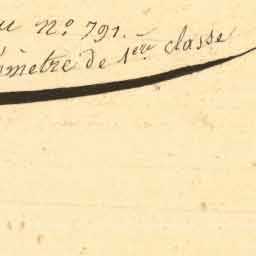 au N.º 791.
mètre de 1ère classe